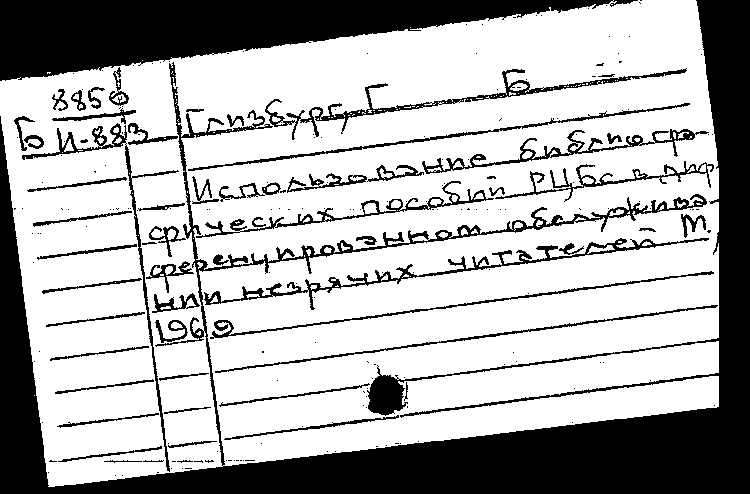 8850
Б И-883
Глизбург, Г Б
Использование библиогра-
фических пособий РЦБс в диф
ференцированном обслужива
нии незрячих читателей М.,
1969